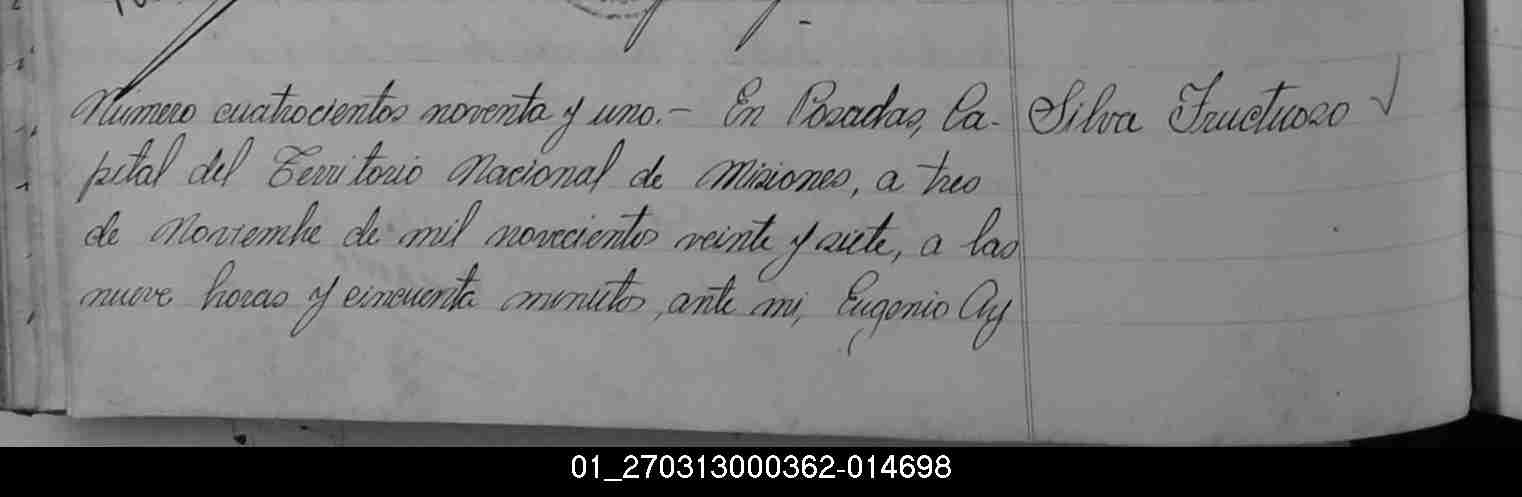 Número cuatrocientos noventa y uno.- En Posadas, Ca-
pital del Territorio Nacional de Misiones, a tres
de Noviembre de mil novecientos veinte y siete, a las
nueve horas y cincuenta minutos, ante mi, Eugenio Ay
Silva Fructuoso
01_270313000362-014698